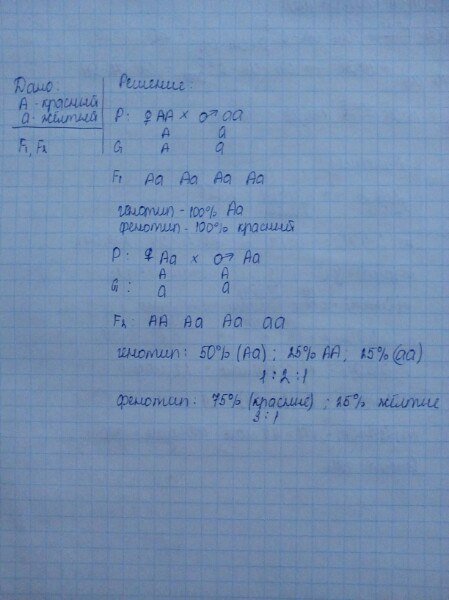 Дано:
А - красный
а - жёлтый
F1, F2
Решение:
P: ♀ AA × ♂ aa
A a
G A a
F1 Aa Aa Aa Aa
генотип - 100% Aa
фенотип - 100% красный
P: ♀ Aa × ♂ Aa
A A
G: a a
F2: AA Aa Aa aa
генотип: 50% (Aa); 25% AA, 25% (aa)
1:2:1
фенотип: 75% (красные); 25% жёлтые
3:1